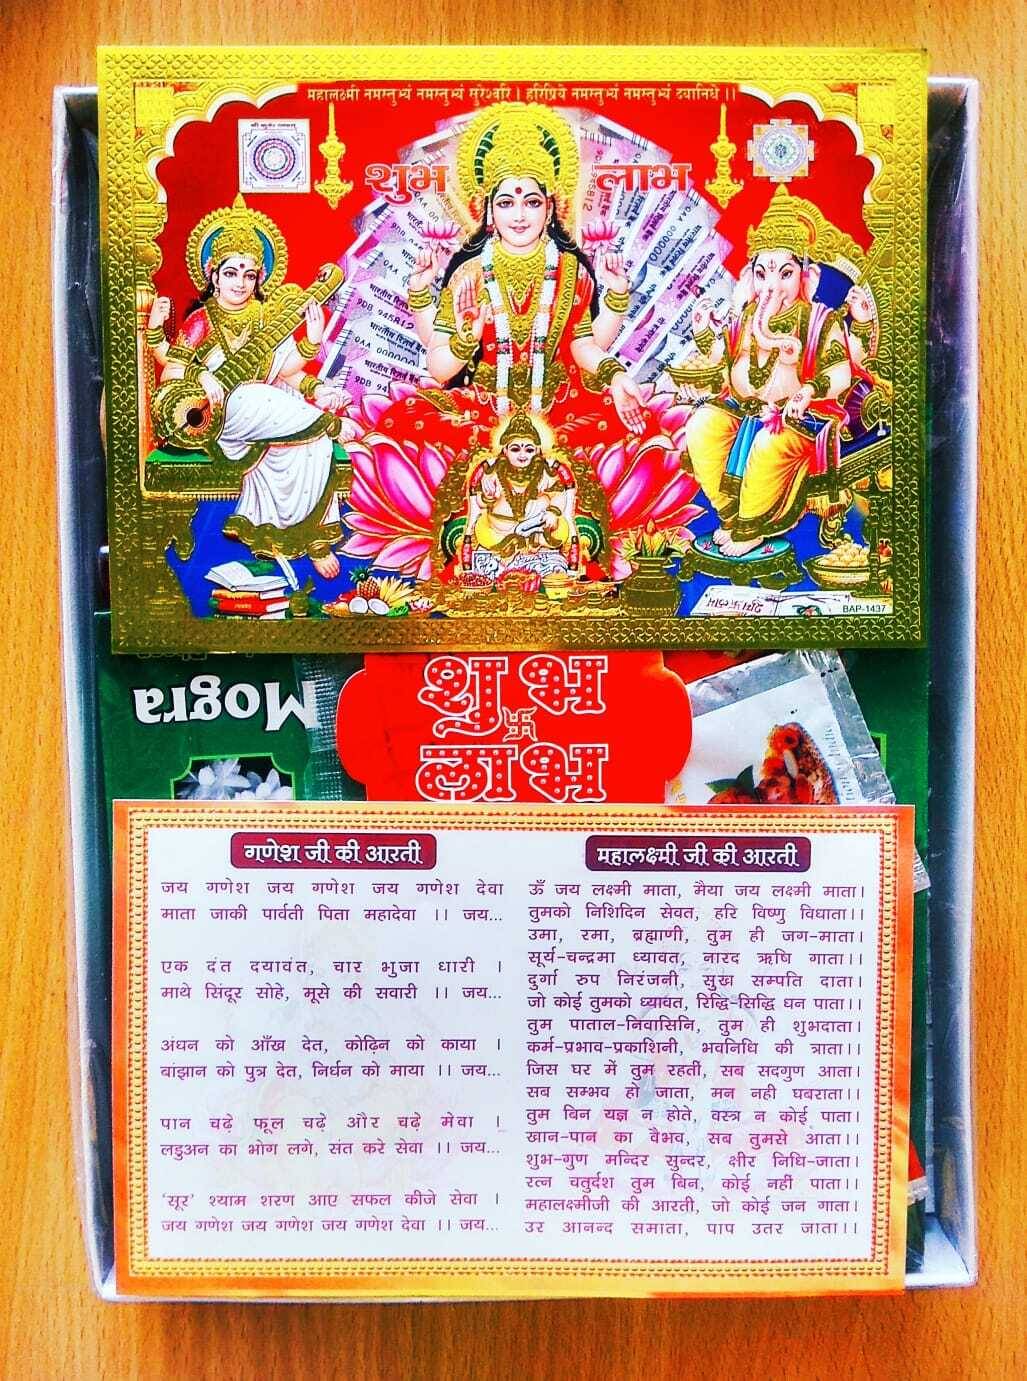 महालक्ष्मी नमस्तुभ्यं नमस्तुभ्यं सुरेश्वरि । हरिप्रिये नमस्तुभ्यं नमस्तुभ्यं दयानिधे ।।
शुभ लाभ
भारतीय रिज़र्व बैंक
9DB 945812
0AA 000000
BAP-1437
Mogra
शुभ
लाभ
गणेश जी की आरती
जय गणेश जय गणेश जय गणेश देवा
माता जाकी पार्वती पिता महादेवा ।। जय...
एक दंत दयावंत, चार भुजा धारी ।
माथे सिंदूर सोहे, मूसे की सवारी ।। जय...
अंधन को आँख देत, कोढ़िन को काया ।
बांझान को पुत्र देत, निर्धन को माया ।। जय...
पान चढ़े फूल चढ़े और चढ़े मेवा ।
लडुअन का भोग लगे, संत करे सेवा ।। जय...
'सूर' श्याम शरण आए सफल कीजे सेवा ।
जय गणेश जय गणेश जय गणेश देवा ।। जय...
महालक्ष्मी जी की आरती
ऊँ जय लक्ष्मी माता, मैया जय लक्ष्मी माता।
तुमको निशिदिन सेवत, हरि विष्णु विधाता।।
उमा, रमा, ब्रह्माणी, तुम ही जग-माता।
सूर्य-चन्द्रमा ध्यावत, नारद ऋषि गाता।।
दुर्गा रुप निरंजनी, सुख सम्पति दाता।
जो कोई तुमको ध्यावत, रिद्धि-सिद्धि धन पाता।।
तुम पाताल-निवासिनि, तुम ही शुभदाता।
कर्म-प्रभाव-प्रकाशिनी, भवनिधि की त्राता।।
जिस घर में तुम रहतीं, सब सदगुण आता।
सब सम्भव हो जाता, मन नही घबराता।।
तुम बिन यज्ञ न होते, वस्त्र न कोई पाता।
खान-पान का वैभव, सब तुमसे आता।।
शुभ-गुण मन्दिर सुन्दर, क्षीर निधि-जाता।
रत्न चतुर्दश तुम बिन, कोई नहीं पाता।।
महालक्ष्मीजी की आरती, जो कोई जन गाता।
उर आनन्द समाता, पाप उतर जाता।।